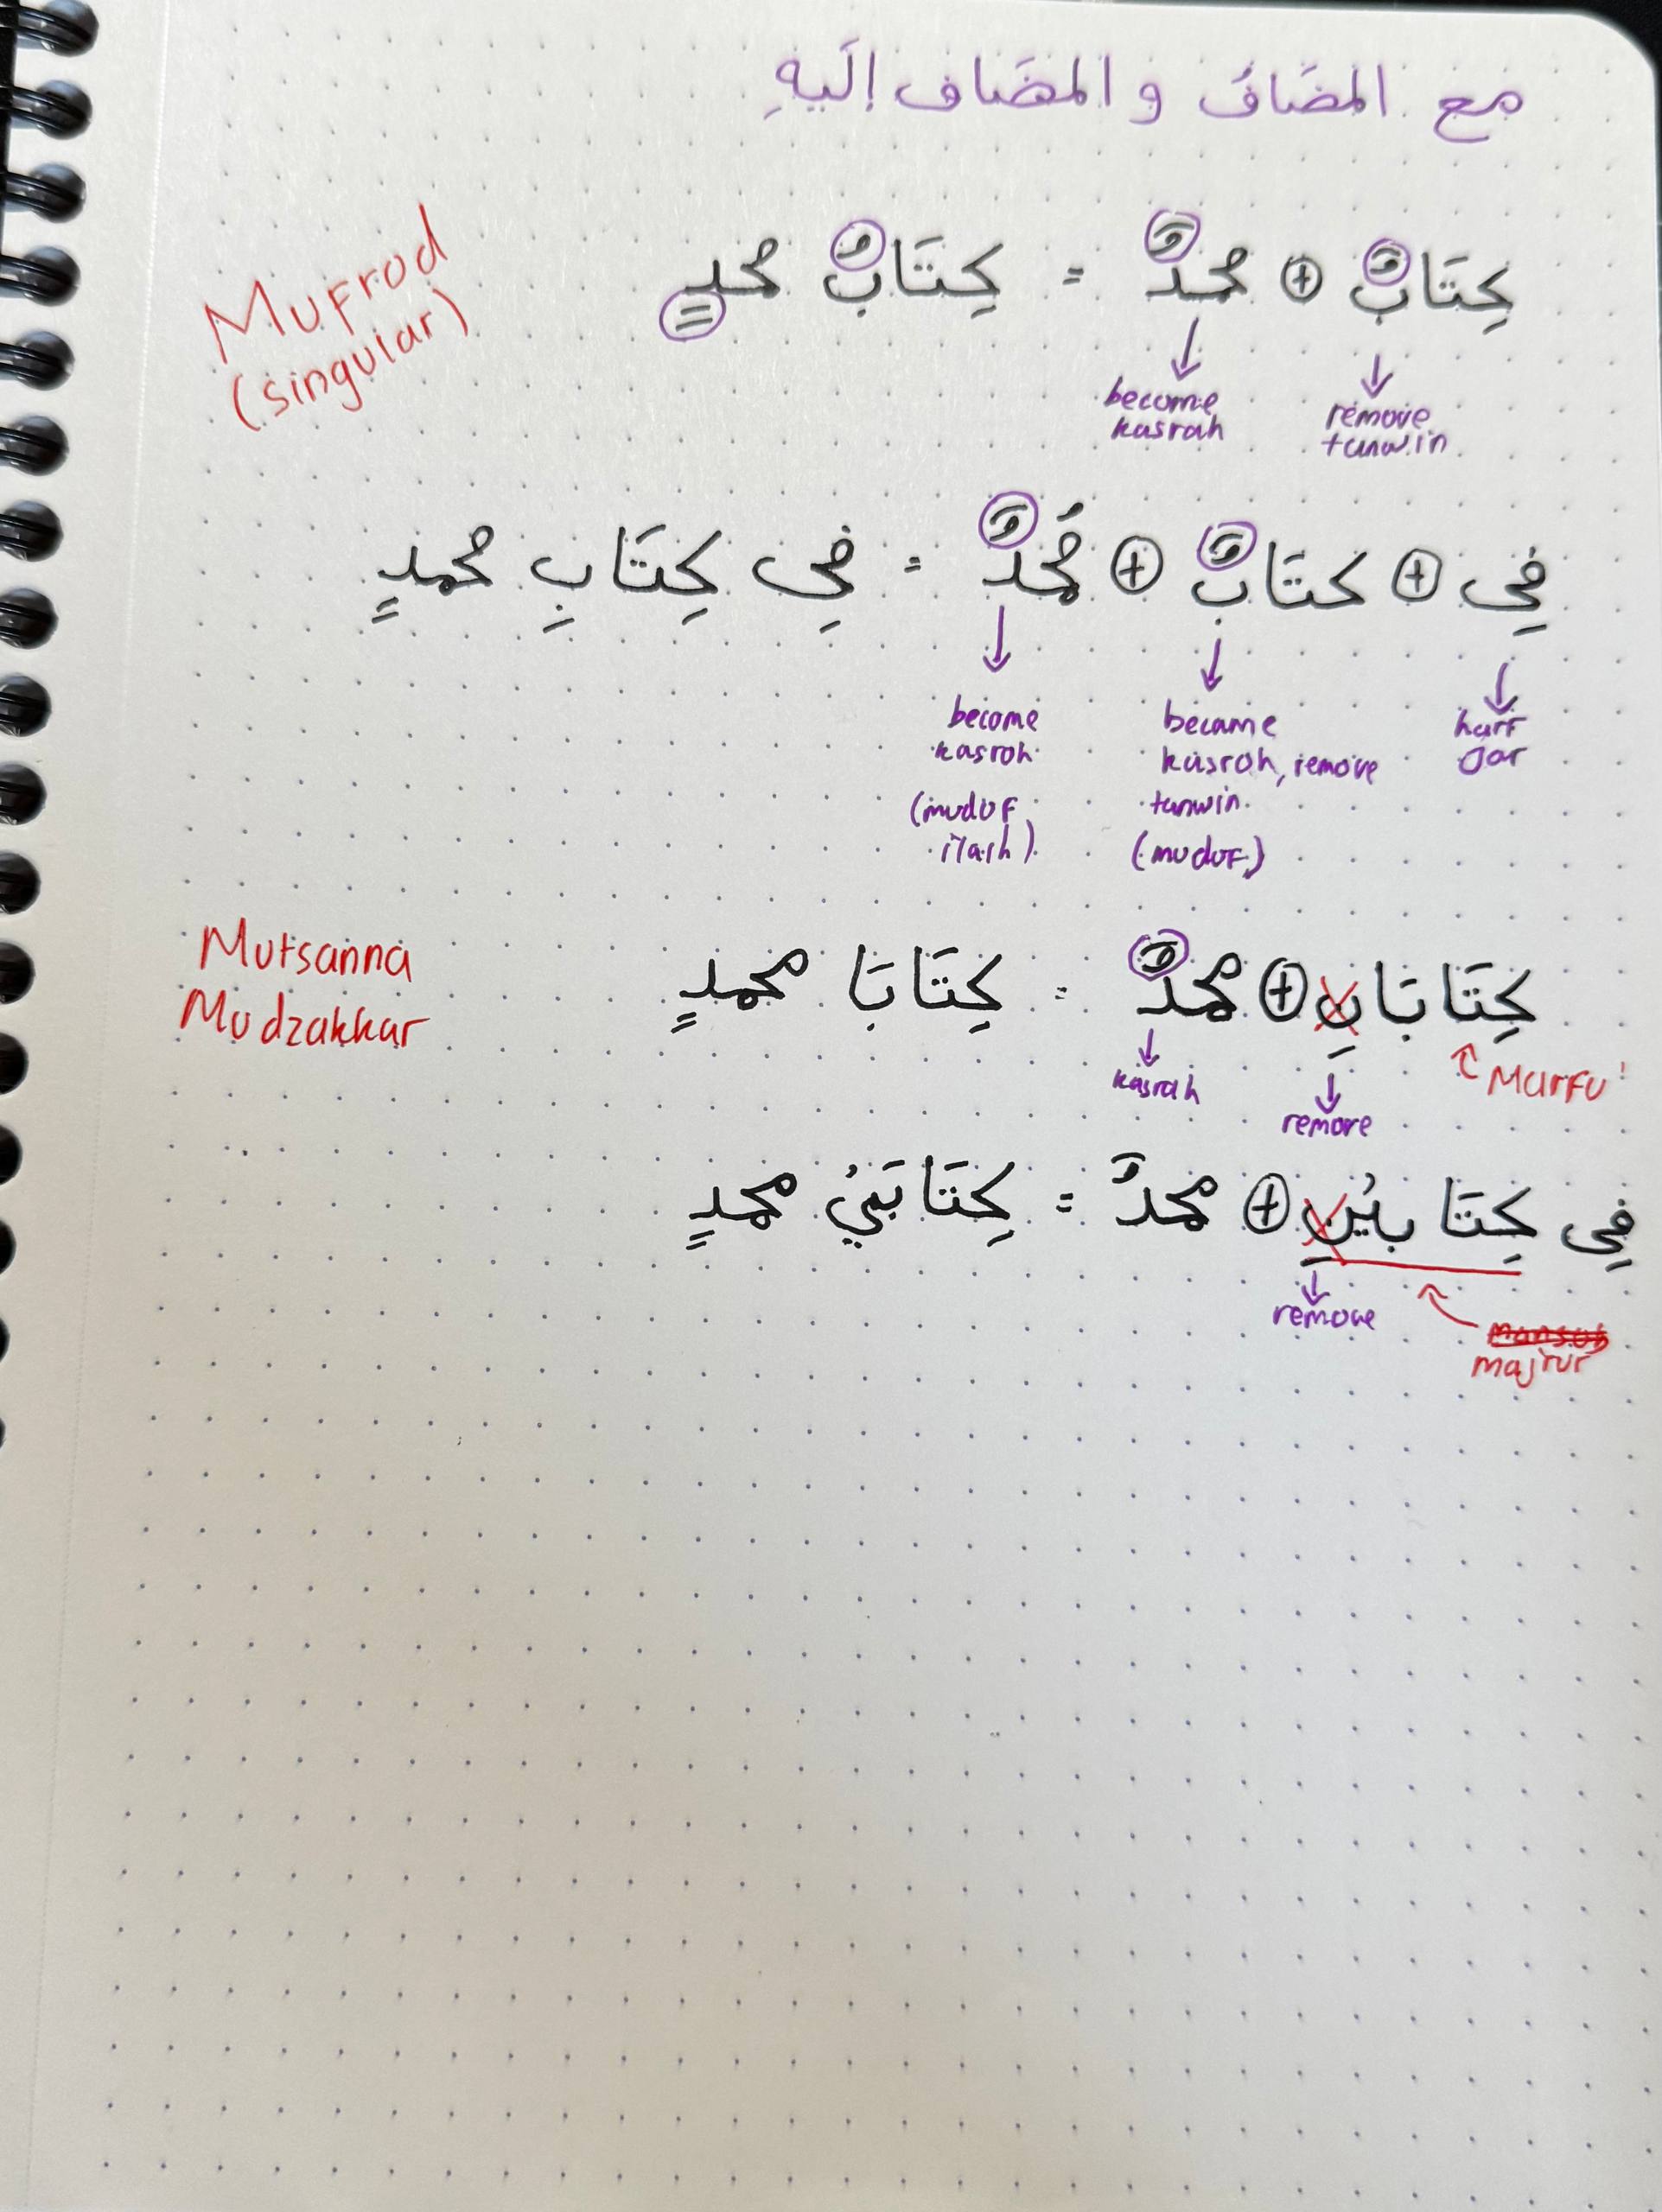 مع المضَافُ و المضَاف إلَيهِ
Mufrod
(singular)
كِتَابٌ + محمدٌ = كِتَابُ محمدٍ
become kasrah
remove tanwin
فِي + كتَابٌ + مُحمدٌ = فِي كِتَابِ محمدٍ
harf jar
became kasroh, remove tanwin (muduf)
become kasroh (mudof ilaih)
Mutsanna
Mudzakkar
كِتَابَانِ + محمدٌ = كِتَابَا محمدٍ
Marfu'
remove
kasrah
فِي كِتَابيْنِ + محمدٌ = كِتَابَيْ محمدٍ
remove
mansub
majrur